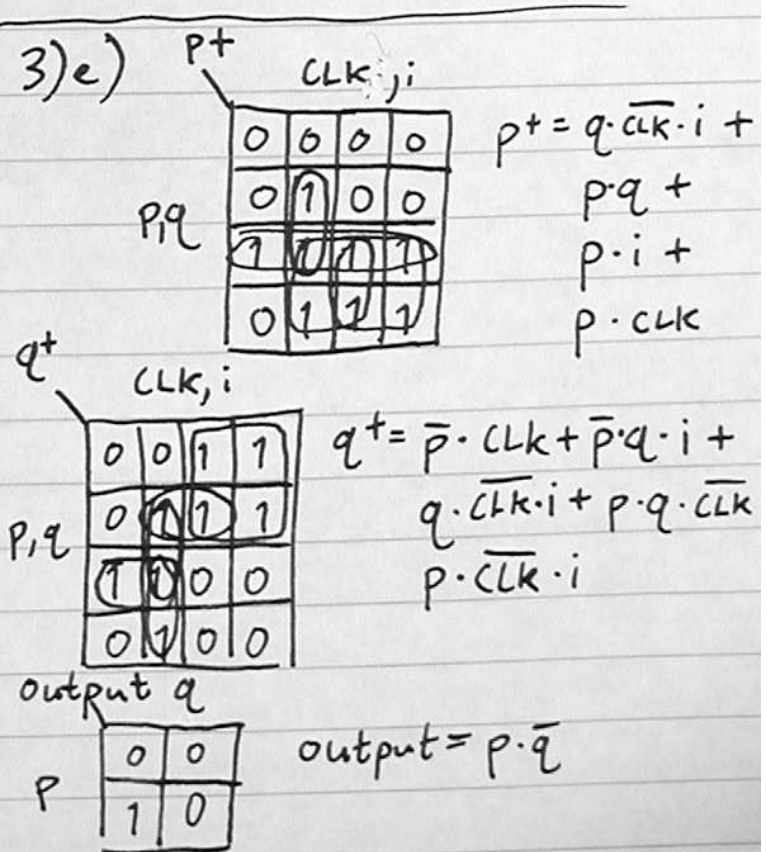 3)e)
p+
CLK, i
p,q
0 0 0 0
0 1 0 0
1 1 1 1
0 1 1 1
p+ = q·C̅L̅K̅·i +
p·q +
p·i +
p·CLK
q+
CLK, i
p,q
0 0 1 1
0 1 1 1
1 1 0 0
0 1 0 0
q+ = p̅·CLK + p̅·q·i +
q·C̅L̅K̅·i + p·q·C̅L̅K̅
p·C̅L̅K̅·i
output q
p
0 0
1 0
output = p·q̅